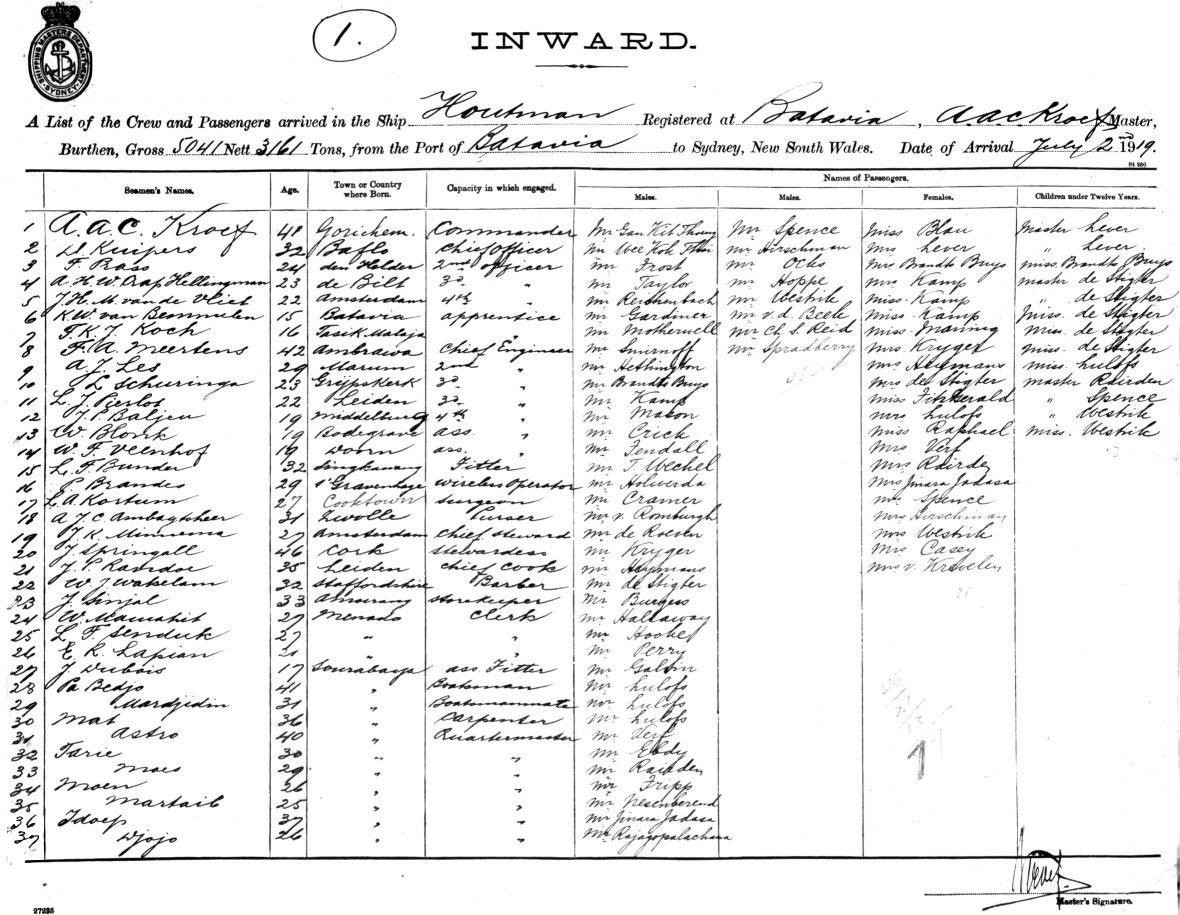 SHIPPING MASTERS DEPARTMENT SYDNEY
1.
INWARD.
A List of the Crew and Passengers arrived in the Ship Houtman Registered at Batavia, A.A.C. Kroef Master,
Burthen, Gross 5041 Nett 3161 Tons, from the Port of Batavia to Sydney, New South Wales. Date of Arrival July 2nd 1919.
St 250
Names of Passengers.
Seamen's Names. Age. Town or Country where Born. Capacity in which engaged. Males. Males. Females. Children under Twelve Years.
1 A.A.C. Kroef 41 Gorichem. Commander Mr Gan Kit Mr Spence Miss Blau Master Lever
2 D. Kuipers 32 Baflo Chief Officer Mr Wee Koh Mr Hirschman Mrs Lever " Lever
3 F. Rass 24 den Helder 2nd Officer Mr Frost Mr Ochs Mrs Brandts Buys miss. Brandts Buys
4 A.H.W. Hellingman 23 de Bilt 3d " Mr Taylor Mr Hoppe Mrs Kamp master de Stigter
5 J.H.M. van de Vliet 22 Amsterdam 4th " Mr Reichenbach Mr Westrik miss. Kamp " de Stigter
6 K.W. van Bemmelen 15 Batavia apprentice Mr Gardiner Mr v.d. Beek miss. Kamp miss. de Stigter
7 F.K.J. Koch 16 Tasik Malaja " Mr Motherwell Mr Ch. S. Reid miss. Maning miss. de Stigter
8 F.A. Meertens 42 Ambrawa Chief Engineer Mr Smirnoff Mr Spradberry Mrs. Kryger miss. de Stigter
9 A.J. Les 29 Marum 2nd " Mr Hethington Mrs Heymans miss. Lulofs
10 L. Schuringa 23 Grijpskerk 3d " Mr Brandts Buys Mrs de Stigter master Rairden
11 L.J. Pierlot 22 Leiden 3d " Mr Kamp miss Fitzgerald " Spence
12 J.P. Baljeu 19 Middelburg 4th " Mr Mason Mrs Lulofs " Westrik
13 W. Blonk 19 Bodegrave ass. " Mr Crick miss Raphael miss. Westrik
14 W.F. Veenhof 19 Doorn ass. " Mr Tendall Mrs Verf
15 L.F. Bunder 32 Singkawang Fitter Mr T. Wechel Mrs Rairden
16 P. Brandes 29 s'Gravenhage wireless Operator Mr Holwerda Mrs Jinara Jadasa
17 L.A. Kortum 27 Cooktown surgeon Mr Cramer Mrs Spence
18 A.J.C. Ambagtsheer 31 Zwolle Purser Mr v. Romburgh Mrs Hirschman
19 J.K. Minnema 27 Amsterdam chief steward Mr de Roever Mrs Westrik
20 J. Springall 46 Cork stewardess Mr Kryger Mrs Casey
21 J.P. Ramdoe 35 Leiden chief Cook Mr Heymans Mrs v. Krevelen
22 W.J. Wakelam 32 Staffordshire Barber Mr de Stigter
23 J. Sinjal 33 Amoerang storekeeper Mr Burgess
24 W. Mamahit 27 Menado Clerk Mr Hallaway
25 L.F. Senduk 27 " " Mr Hooke
26 E.R. Lapian 21 " " Mr Perry
27 J. Dubois 17 Sourabaya ass. Fitter Mr Galvin
28 Pa Bedjo 41 " Boatsman Mr Lulofs
29 Mardjidin 31 " Boatsmanmate Mr Lulofs
30 Mat 36 " Carpenter Mr Lulofs
31 Astro 40 " Quartermaster Mr Verf
32 Tarie 30 " " Mr Eddy
33 Moes 29 " " Mr Rairden
34 Moen 26 " " Mr Tripp
35 Martaib 25 " " Mr Nesenberend
36 Idoep 37 " " Mr Jinara Jadasa
37 Djojo 26 " " Mr Rajagopalachana
1
Master's Signature.
27235